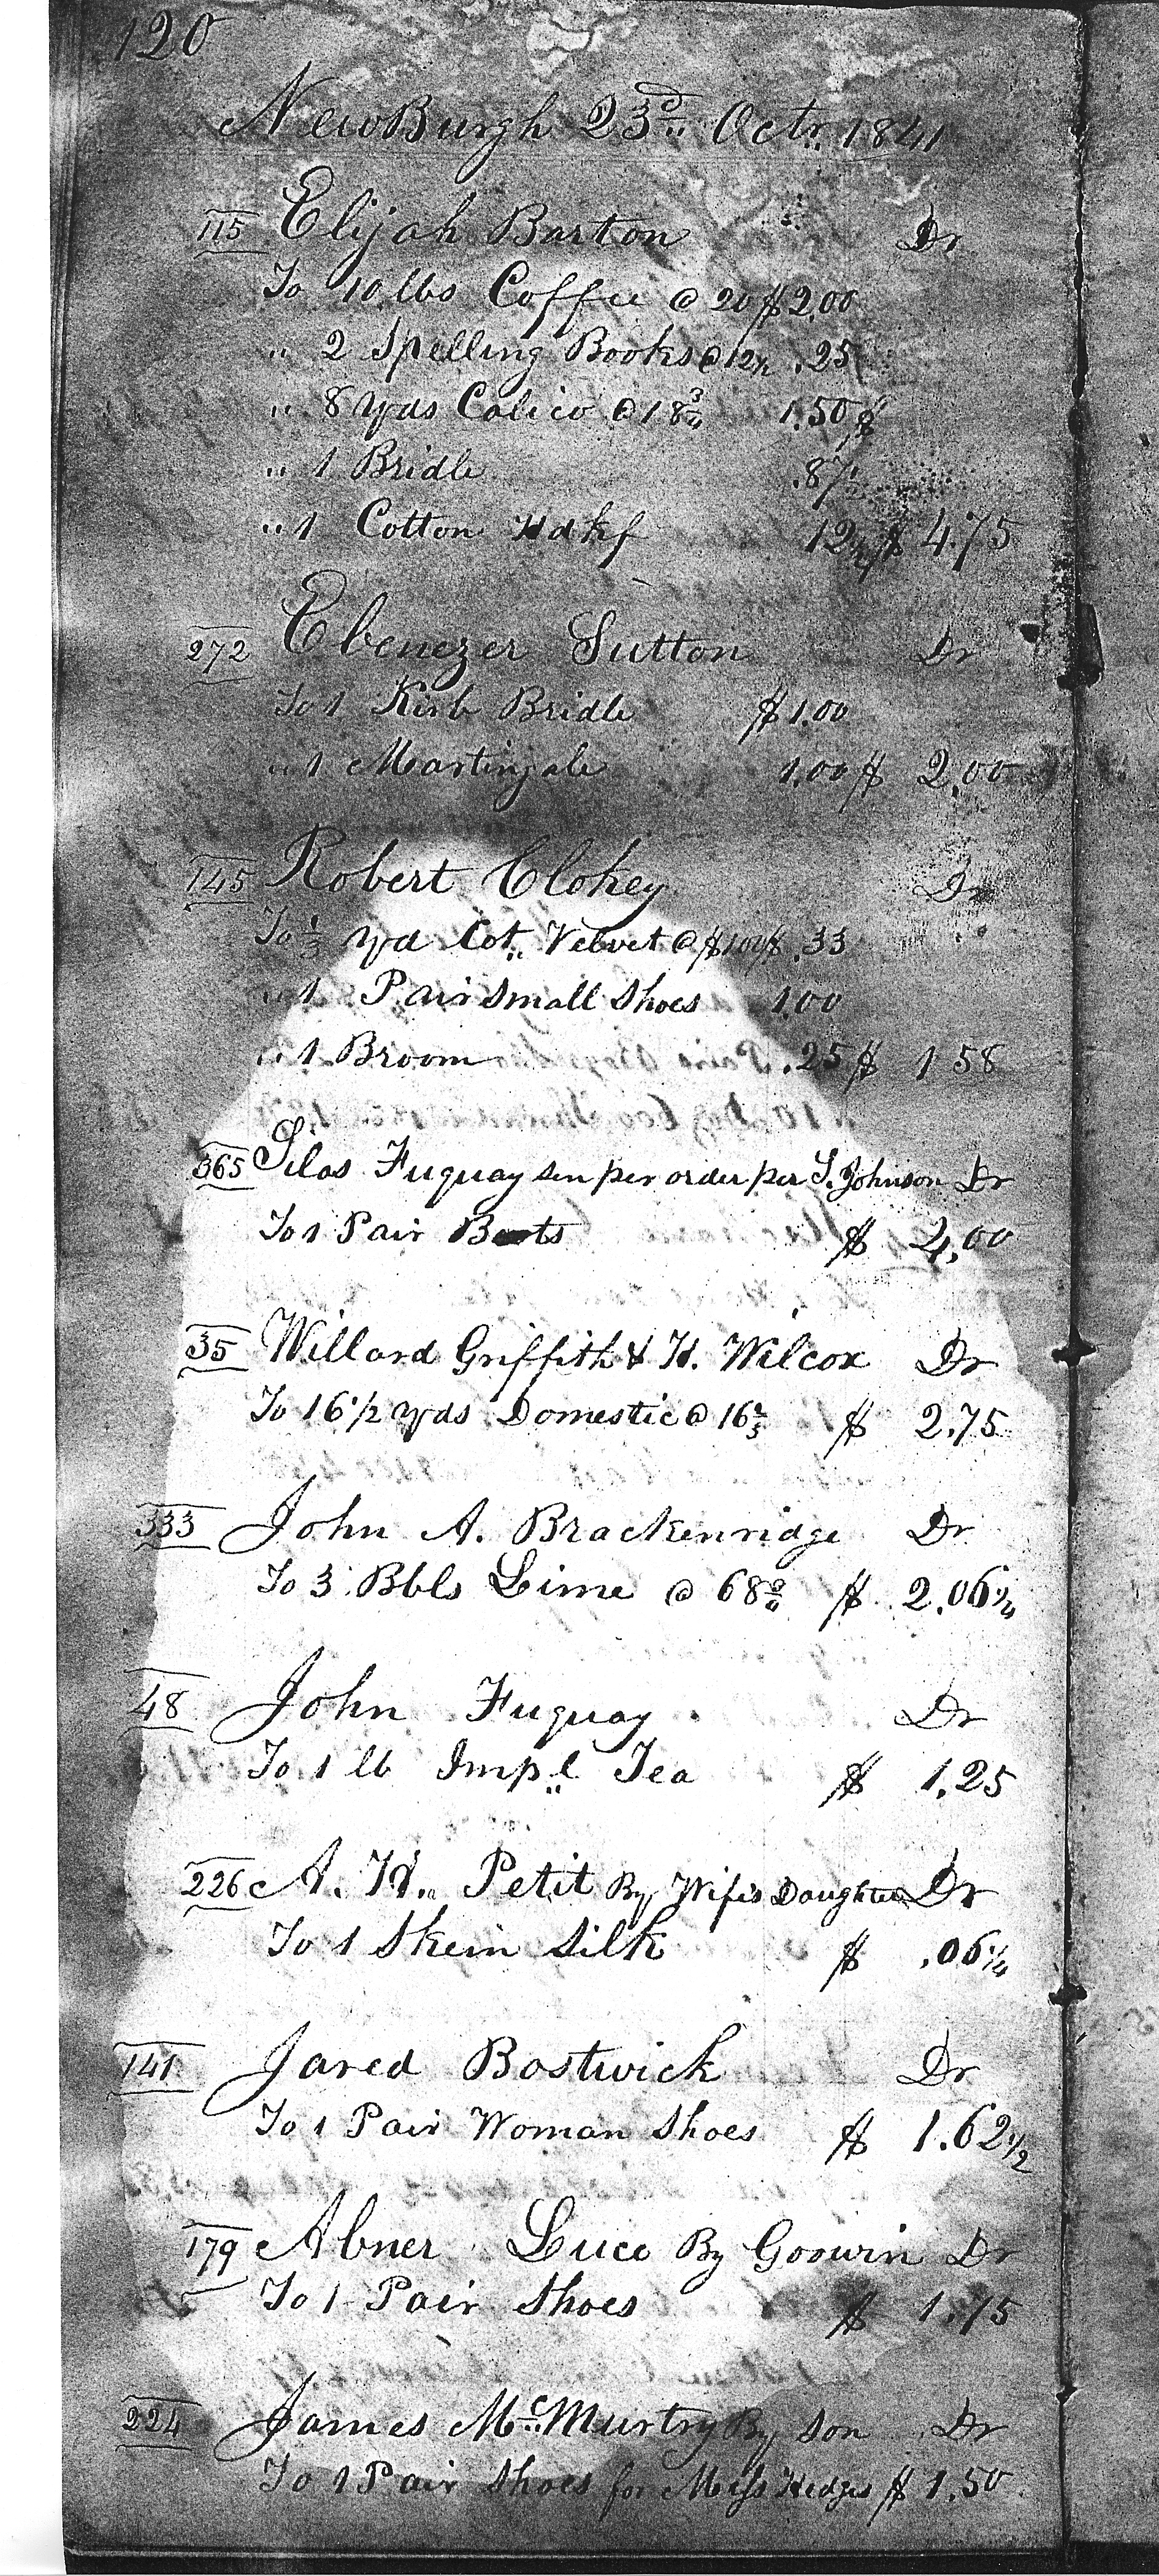 120
NewBurgh 23d Octr 1841
115 Elijah Barton Dr
To 10 lbs Coffee @ 20 $ 2.00
" 2 Spelling Books @ 12½ .25
" 8 yds Calico @ 18¾ 1.50 $
" 1 Bridle .87½
" 1 Cotton Hdkf 12½ $ 4.75
272 Ebenezer Sutton Dr
To 1 Kirb Bridle $ 1.00
" 1 Martingale 1.00 $ 2.00
145 Robert Clokey Dr
To ⅓ yd Cot. Velvet @ $1.00 $ .33
" 1 Pair Small Shoes 1.00
" 1 Broom .25 $ 1 58
365 Silas Fuquay sen per order per S. Johnson Dr
To 1 Pair Boots $ 4.00
35 Willard Griffith & H. Wilcox Dr
To 16 1/2 yds Domestic @ 16⅔ $ 2.75
333 John A. Brackenridge Dr
To 3 Bbls Lime @ 68¾ $ 2.06¼
48 John Fuquay Dr
To 1 lb Impl Tea $ 1.25
226 A. H. Petit By Wifes Daughter Dr
To 1 Skein Silk $ .06¼
141 Jared Bostwick Dr
To 1 Pair Woman Shoes $ 1.62½
179 Abner Luce By Goowin Dr
To 1 Pair Shoes $ 1.75
224 James McMurtry By Son Dr
To 1 Pair Shoes for Miss Hedges $ 1.50